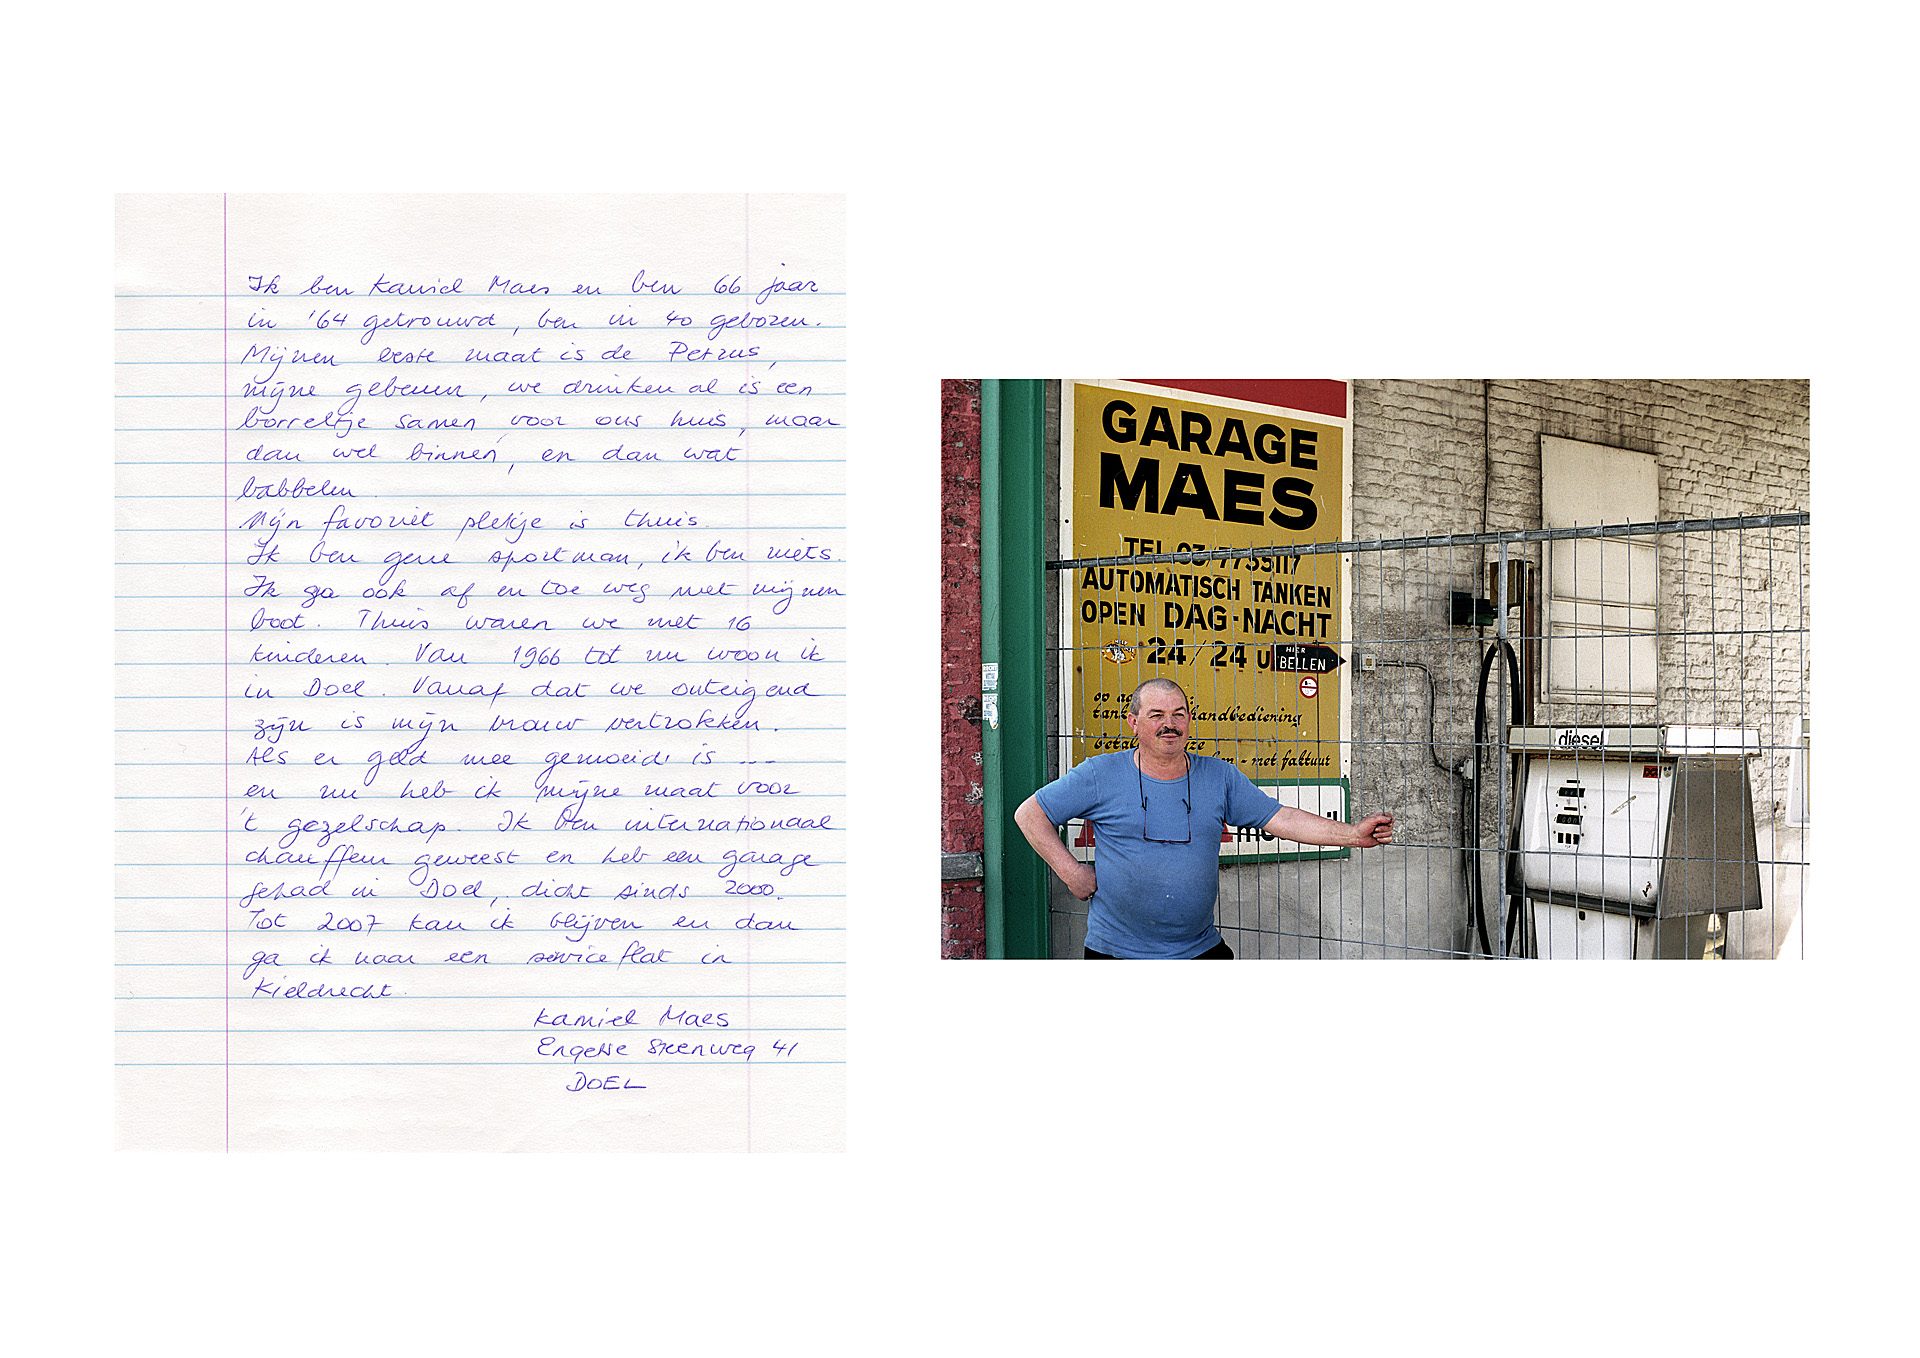 Ik ben Kamiel Maes en ben 66 jaar
in '64 getrouwd, ben in 40 geboren.
Mijnen beste maat is de Petrus,
mijne gebeuur, we drinken al is een
borreltje samen voor ons huis, maar
dan wel binnen, en dan wat
babbelen.
Mijn favoriet plekje is thuis.
Ik ben gene sportman, ik ben niets.
Ik ga ook af en toe weg met mijnen
boot. Thuis waren we met 16
kinderen. Van 1966 tot nu woon ik
in Doel. Vanaf dat we onteigend
zijn is mijn vrouw vertrokken.
Als er geld mee gemoeid is ---
en nu heb ik mijne maat voor
't gezelschap. Ik ben internationaal
chauffeur geweest en heb een garage
gehad in Doel, dicht sinds 2000.
Tot 2007 kan ik blijven en dan
ga ik naar een serviceflat in
Kieldrecht.
Kamiel Maes
Engelse Steenweg 41
DOEL
GARAGE
MAES
TEL 03-7735117
AUTOMATISCH TANKEN
OPEN DAG-NACHT
24/24 U
HIER
BELLEN
handbediening
- met faktuur
diesel